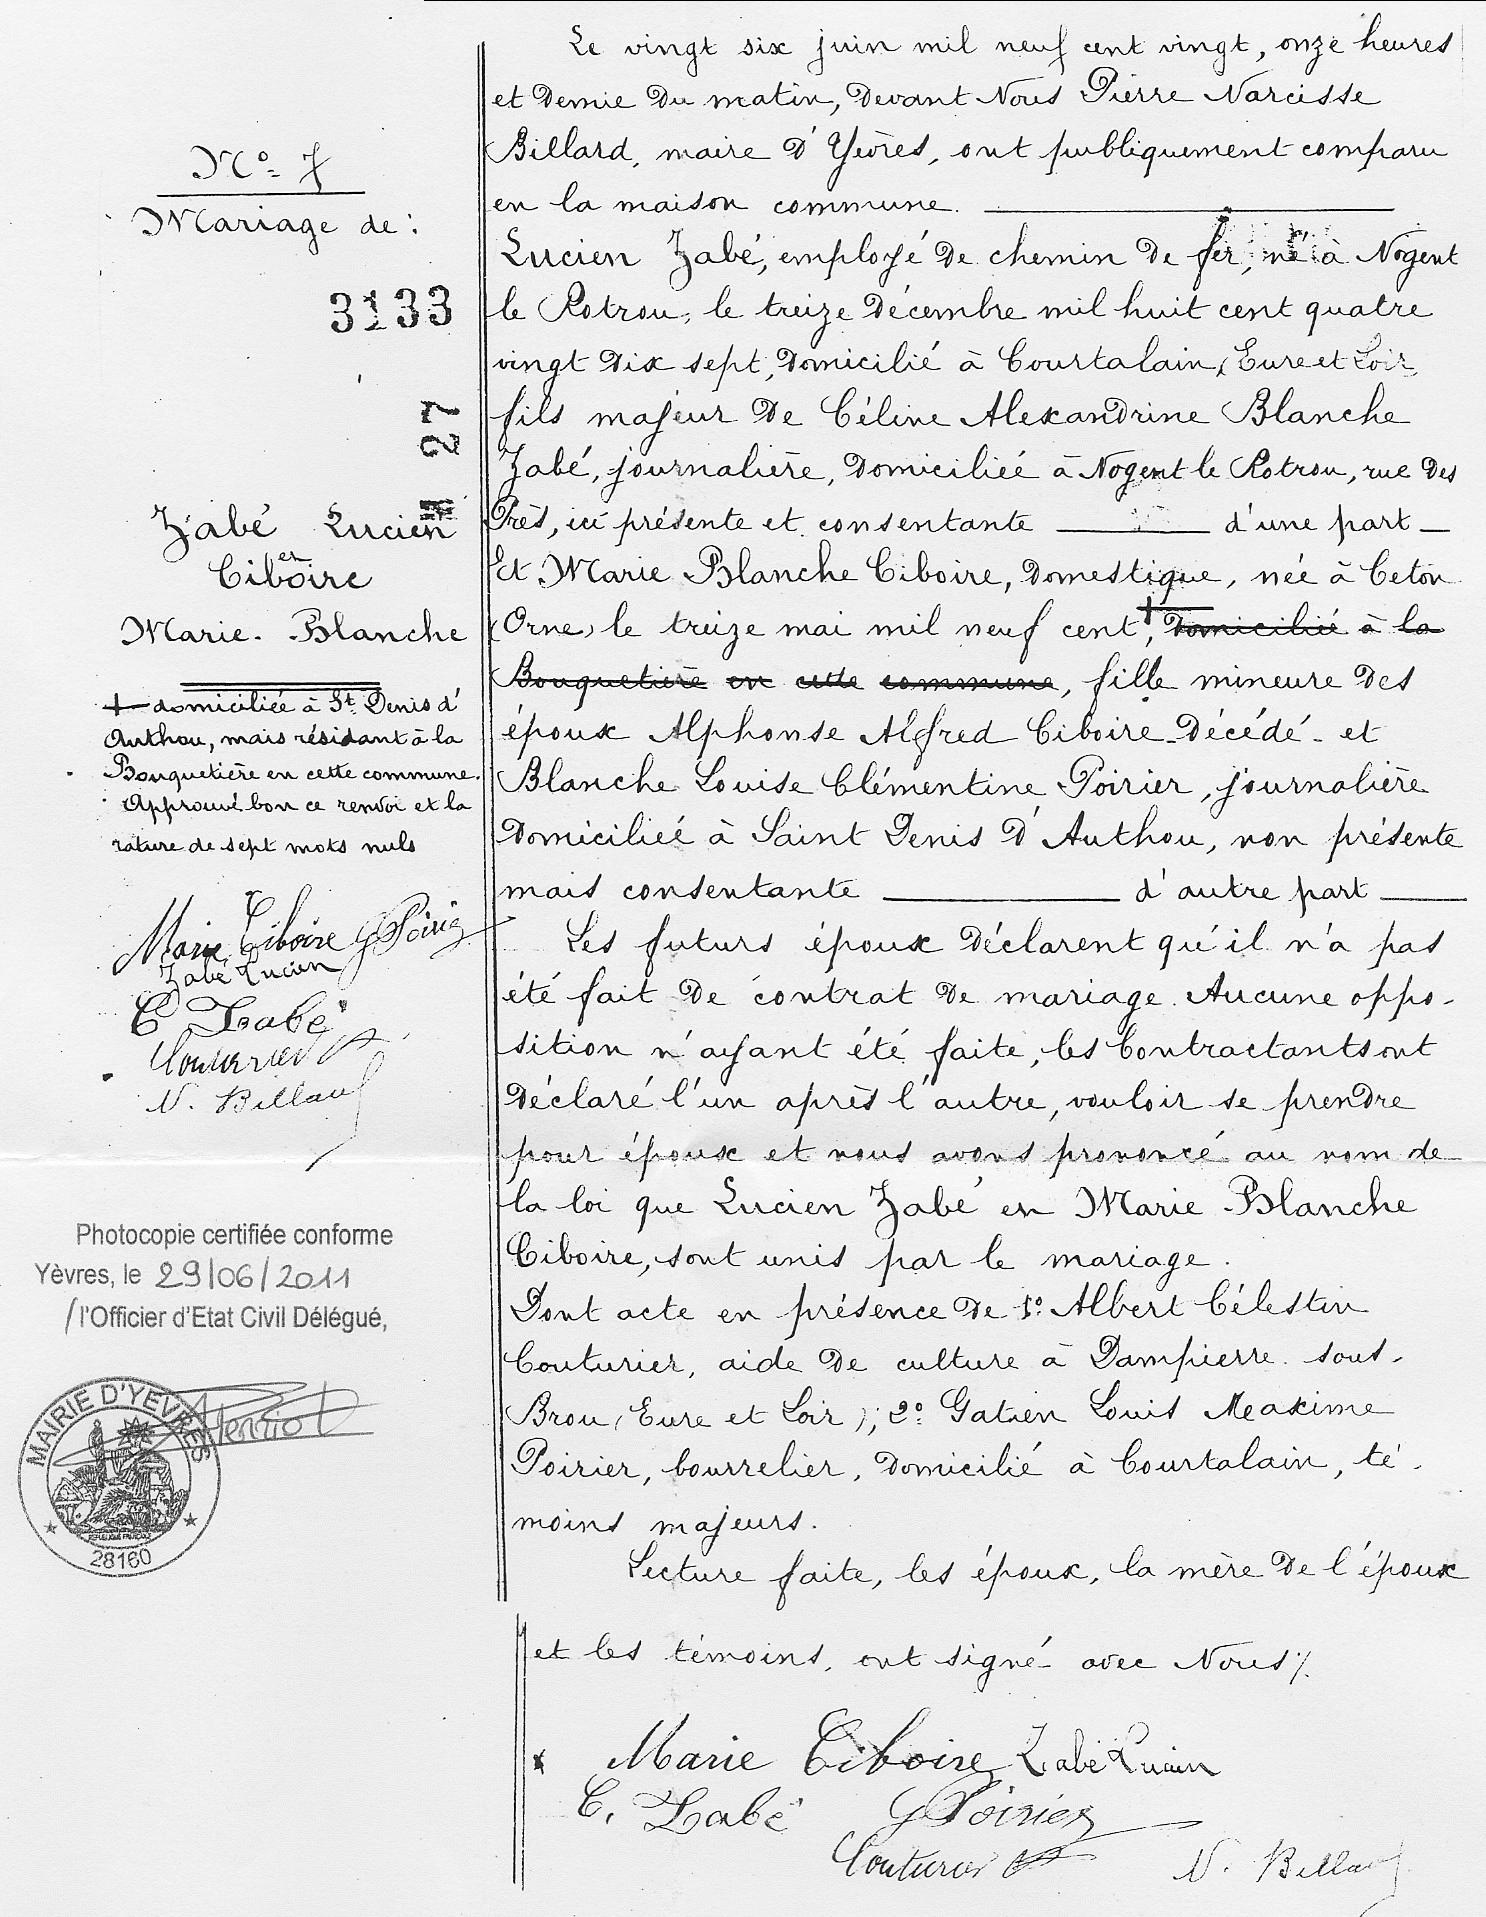 N° 7
Mariage de :
3133
27
Zabé Lucien
en
Ciboire
Marie-Blanche
+ domiciliée à St Denis d'
Authou, mais résidant à la
Bouquetière en cette commune.
Approuvé bon ce renvoi et la
rature de sept mots nuls
Marie Ciboire G Poirier
Zabé Lucien
C Zabé
Couturier
N. Billard
Photocopie certifiée conforme
Yèvres, le 29/06/2011
/ l'Officier d'Etat Civil Délégué,
MAIRIE D'YEVRES
28160
Le vingt six juin mil neuf cent vingt, onze heures
et demie du matin, devant Nous Pierre Narcisse
Billard, maire d'Yèvres, ont publiquement comparu
en la maison commune.
Lucien Zabé, employé de chemin de fer, né à Nogent
le Rotrou, le treize décembre mil huit cent quatre
vingt dix sept, domicilié à Courtalain, Eure et Loir,
fils majeur de Céline Alexandrine Blanche
Zabé, journalière, domiciliée à Nogent le Rotrou, rue des
Près, ici présente et consentante d'une part
Et Marie Blanche Ciboire, domestique, née à Ceton
(Orne) le treize mai mil neuf cent +, domicilié à la
Bouquetière en cette commune, fille mineure des
époux Alphonse Alfred Ciboire - décédé - et
Blanche Louise Clémentine Poirier, journalière
domiciliée à Saint Denis d'Authou, non présente
mais consentante d'autre part
Les futurs époux déclarent qu'il n'a pas
été fait de contrat de mariage. Aucune oppo-
sition n'ayant été faite, les Contractants ont
déclaré l'un après l'autre, vouloir se prendre
pour époux et nous avons prononcé au nom de
la loi que Lucien Zabé en Marie-Blanche
Ciboire, sont unis par le mariage.
Dont acte en présence de 1° Albert Célestin
Couturier, aide de culture à Dampierre-sous-
Brou (Eure et Loir) ; 2° Gatien Louis Maxime
Poirier, bourrelier, domicilié à Courtalain, té-
moins majeurs.
Lecture faite, les époux, la mère de l'époux
et les témoins, ont signé avec Nous ./.
Marie Ciboire Zabé Lucien
C. Zabé G Poirier
Couturier N. Billard